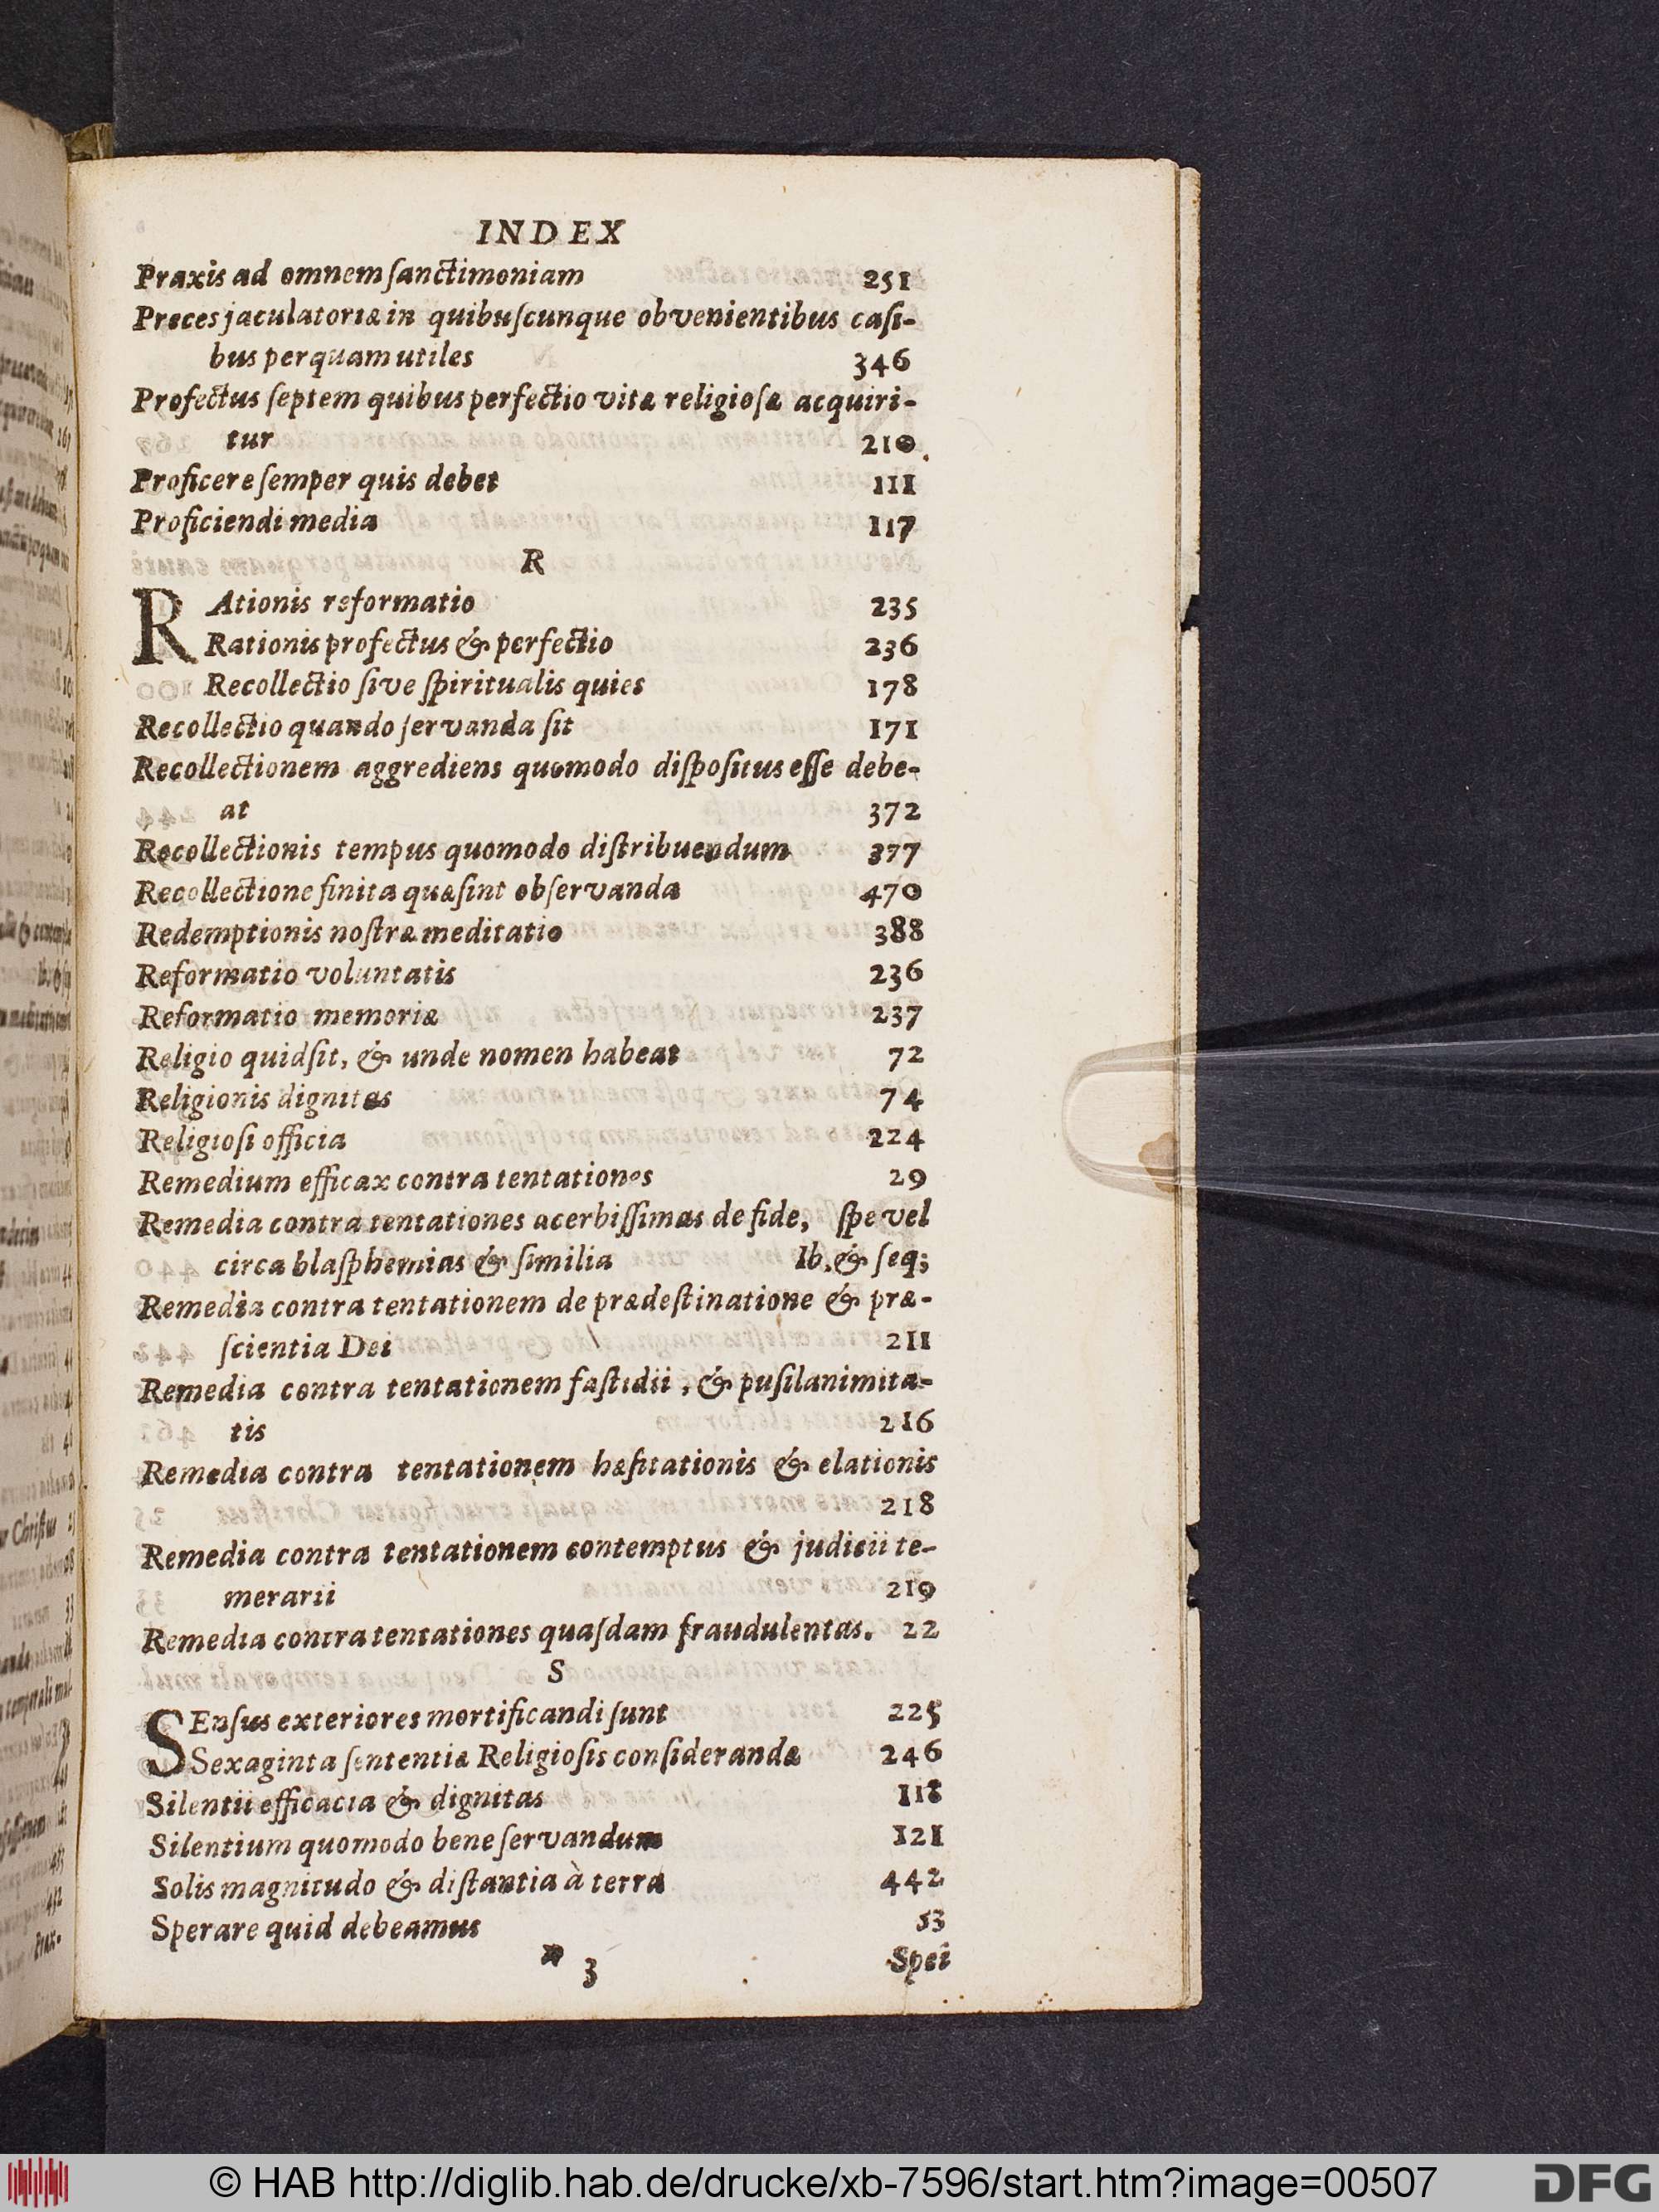 INDEX
Praxis ad omnem ſanctimoniam 251
Preces jaculatoriæ in quibuſcunque obvenientibus caſi-
bus perquam utiles 346
Profectus ſeptem quibus perfectio vitæ religioſæ acquiri-
tur 210
Proficere ſemper quis debet 111
Proficiendi media 117
R
RAtionis reformatio 235
Rationis profectus & perfectio 236
Recollectio ſive ſpiritualis quies 178
Recollectio quando ſervanda ſit 171
Recollectionem aggrediens quomodo diſpoſitus eſſe debe-
at 372
Recollectionis tempus quomodo diſtribuendum 377
Recollectione finita quæ ſint obſervanda 470
Redemptionis noſtræ meditatio 388
Reformatio voluntatis 236
Reformatio memoriæ 237
Religio quid ſit, & unde nomen habeat 72
Religionis dignitas 74
Religioſi officia 224
Remedium efficax contra tentationes 29
Remedia contra tentationes acerbiſſimas de fide, ſpe vel
circa blaſphemias & ſimilia Ib. & ſeq;
Remedia contra tentationem de prædeſtinatione & præ-
ſcientia Dei 211
Remedia contra tentationem faſtidii, & puſilanimita-
tis 216
Remedia contra tentationem hæſitationis & elationis
218
Remedia contra tentationem contemptus & judicii te-
merarii 219
Remedia contra tentationes quaſdam fraudulentas. 22
S
SEnſus exteriores mortificandi ſunt 225
Sexaginta ſententiæ Religioſis conſiderandæ 246
Silentii efficacia & dignitas 118
Silentium quomodo bene ſervandum 121
Solis magnitudo & diſtantia à terra 442
Sperare quid debeamus 53
* 3 Spei
© HAB http://diglib.hab.de/drucke/xb-7596/start.htm?image=00507
DFG